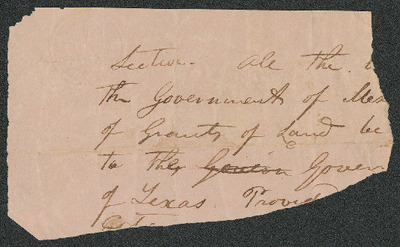 Section. All the
the Government of Mex
of Grants of Land be
to the Govern
of Texas. Provid